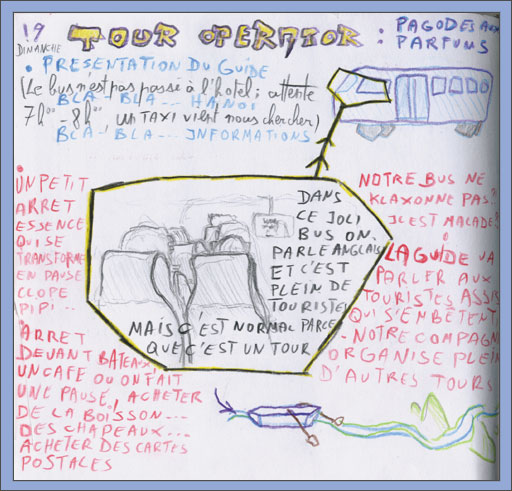 19
DIMANCHE
TOUR OPERATOR : PAGODES AUX
PARFUMS
• PRESENTATION DU GUIDE
(Le bus n'est pas passé à l'hotel ; attente
BLA - BLA... HANOI
7h00 - 8h00 un TAXI vient nous chercher)
BLA - BLA... INFORMATIONS
UN PETIT
ARRET
ESSENCE
QUI SE
TRANSFORME
EN PAUSE
CLOPE
PIPI...
ARRET
DEVANT BATEAUX,
UN CAFE OU ON FAIT
UNE PAUSE, ACHETER
DE LA BOISSON...
DES CHAPEAUX...
ACHETER DES CARTES
POSTALES
DANS
CE JOLI
BUS ON
PARLE ANGLAIS
ET C'EST
PLEIN DE
TOURISTES
MAIS C'EST NORMAL PARCE
QUE C'EST UN TOUR
NOTRE BUS NE
KLAXONNE PAS?
IL EST MALADE?
LA GUIDE VA
PARLER AUX
TOURISTES ASSIS
QUI S'EMBETENT
- NOTRE COMPAGN
ORGANISE PLEIN
D'AUTRES TOURS